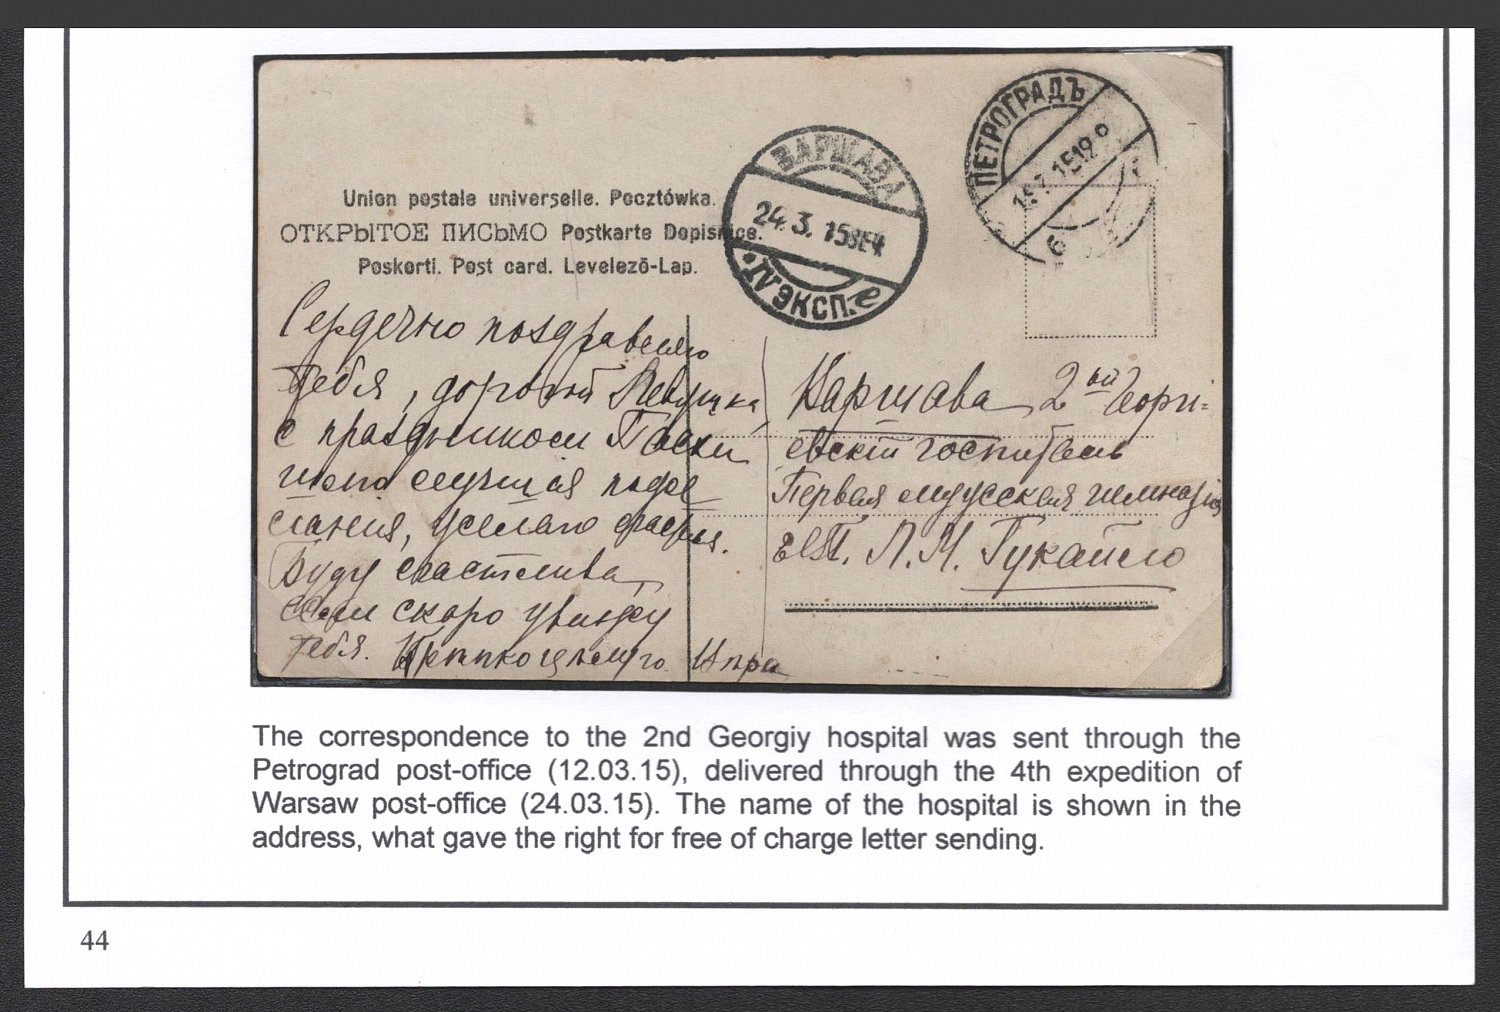 Union postale universelle. Pocztówka.
ОТКРЫТОЕ ПИСЬМО Postkarte Dopisnice.
Poskorti. Post card. Levelezö-Lap.
ВАРШАВА
24.3.15
*IV ЭКСП. е
ПЕТРОГРАДЪ
15 19
6
Сердечно поздравляю
тебя, дорогой
с праздником Пасхи
Буду счастлива,
если скоро увижу
тебя. Крепко целую
Варшава 2ой Георгі-
евскій госпиталь
Первая
Л. М. Гукайло
The correspondence to the 2nd Georgiy hospital was sent through the
Petrograd post-office (12.03.15), delivered through the 4th expedition of
Warsaw post-office (24.03.15). The name of the hospital is shown in the
address, what gave the right for free of charge letter sending.
44